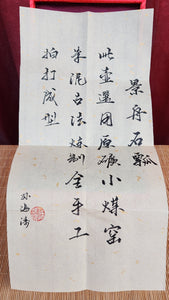 景舟石瓢
此壶選用原礦小煤窑
朱泥古法炼制全手工
拍打成型
孙海涛